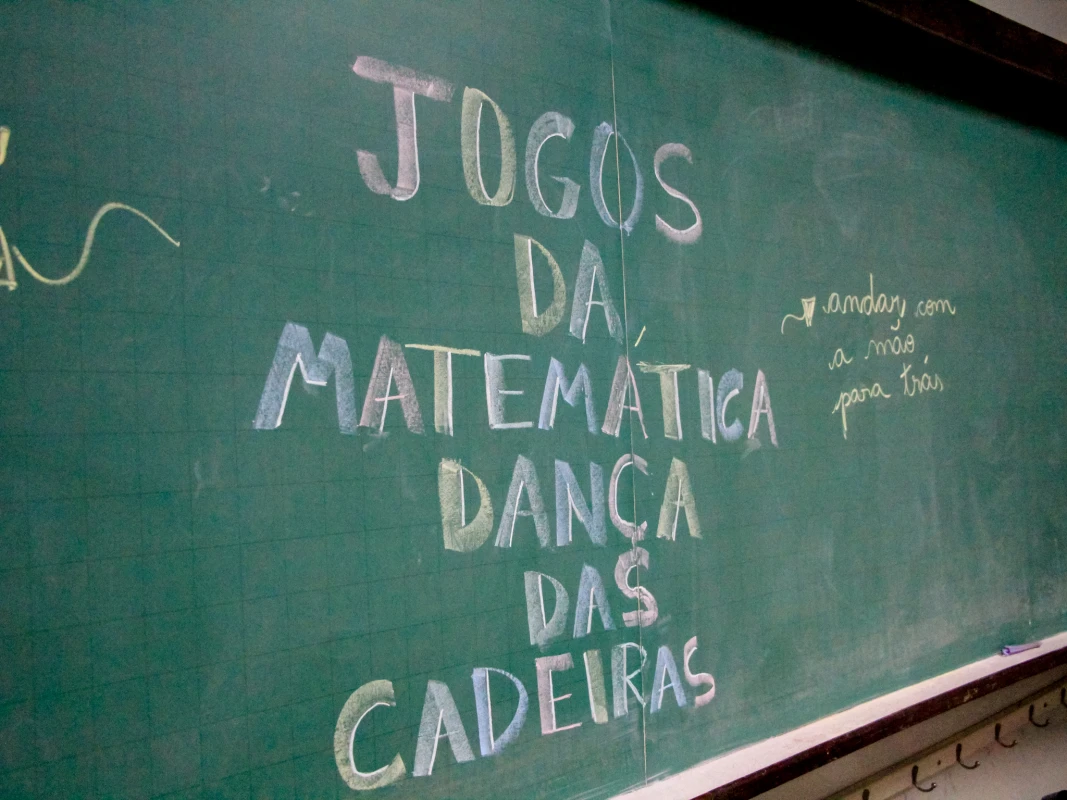 JOGOS
DA
MATEMÁTICA
DANÇA
DAS
CADEIRAS
andar com
a mão
para trás